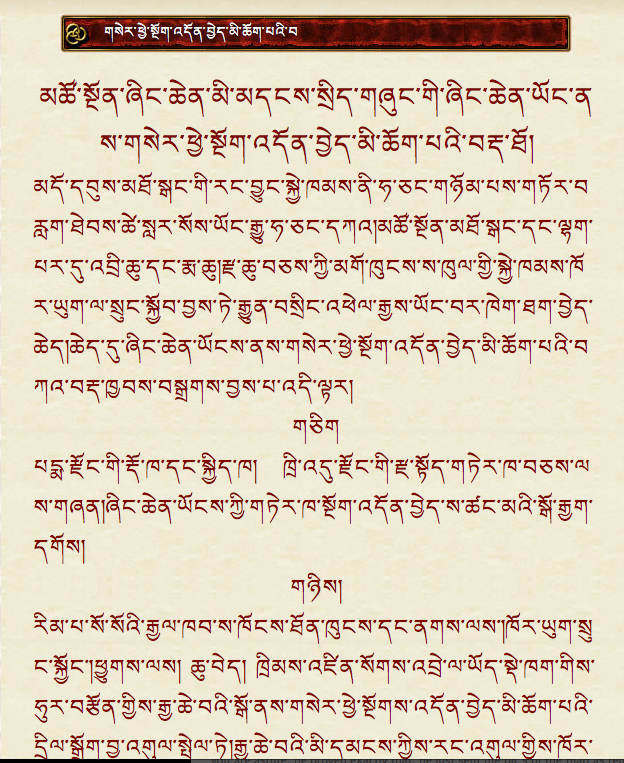 གསེར་ཕྱེ་སྔོག་འདོན་བྱེད་མི་ཆོག་པའི་བ
མཚོ་སྔོན་ཞིང་ཆེན་མི་མདངས་སྲིད་གཞུང་གི་ཞིང་ཆེན་ཡོང་ན
ས་གསེར་ཕྱེ་སྔོག་འདོན་བྱེད་མི་ཆོག་པའི་བརྡ་ཐོ།
མདོ་དབུས་མཐོ་སྒང་གི་རང་བྱུང་སྐྱེ་ཁམས་ནི་ཧ་ཅང་གཉོམ་པས་གཏོར་བ
རླག་ཐེབས་ཚེ་སླར་སོས་ཡོང་རྒྱུ་ཧ་ཅང་དཀའ།མཚོ་སྔོན་མཐོ་སྒང་དང་ལྷག་
པར་དུ་འབྲི་ཆུ་དང་རྨ་ཆུ།རྫ་ཆུ་བཅས་ཀྱི་མགོ་ཁུངས་ས་ཁུལ་གྱི་སྐྱེ་ཁམས་ཁོ
ར་ཡུག་ལ་སྲུང་སྐྱོབ་བྱས་ཏེ་རྒྱུན་བསྲིང་འཕེལ་རྒྱས་ཡོང་བར་ཁེག་ཐག་བྱེད་
ཆེད།ཆེད་དུ་ཞིང་ཆེན་ཡོངས་ནས་གསེར་ཕྱེ་སྔོག་འདོན་བྱེད་མི་ཆོག་པའི་བ
ཀའ་བརྡ་ཁྱབས་བསྒྲགས་བྱས་པ་འདི་ལྟར།
གཅིག
པདྨ་རྫོང་གི་རྡོ་ཁ་དང་སྐྱིད་ཁ། ཁྲི་འདུ་རྫོང་གི་རྫ་སྟོད་གཏེར་ཁ་བཅས་ལ
ས་གཞན།ཞིང་ཆེན་ཡོངས་ཀྱི་གཏེར་ཁ་སྔོག་འདོན་བྱེད་ས་ཚང་མའི་སྒོ་རྒྱག་
དགོས།
གཉིས།
རིམ་པ་སོ་སོའི་རྒྱལ་ཁབ་ས་ཁོངས་ཐོན་ཁུངས་དང་ནགས་ལས།ཁོར་ཡུག་སྲུ
ང་སྐྱོང་།ཕྱུགས་ལས། ཆུ་བེད། ཁྲིམས་འཛིན་སོགས་འབྲེ་ལ་ཡོད་སྡེ་ཁག་གིས་
ཧུར་བརྩོན་གྱིས་རྒྱ་ཆེ་བའི་སྒོ་ནས་གསེར་ཕྱེ་སྔོགས་འདོན་བྱེད་མི་ཆོག་པའི་
དྲིལ་སྒྲོག་བྱ་འགུལ་སྤེལ་ཏེ།རྒྱ་ཆེ་བའི་མི་དམངས་ཀྱིས་རང་འགུལ་གྱིས་ཁོར་